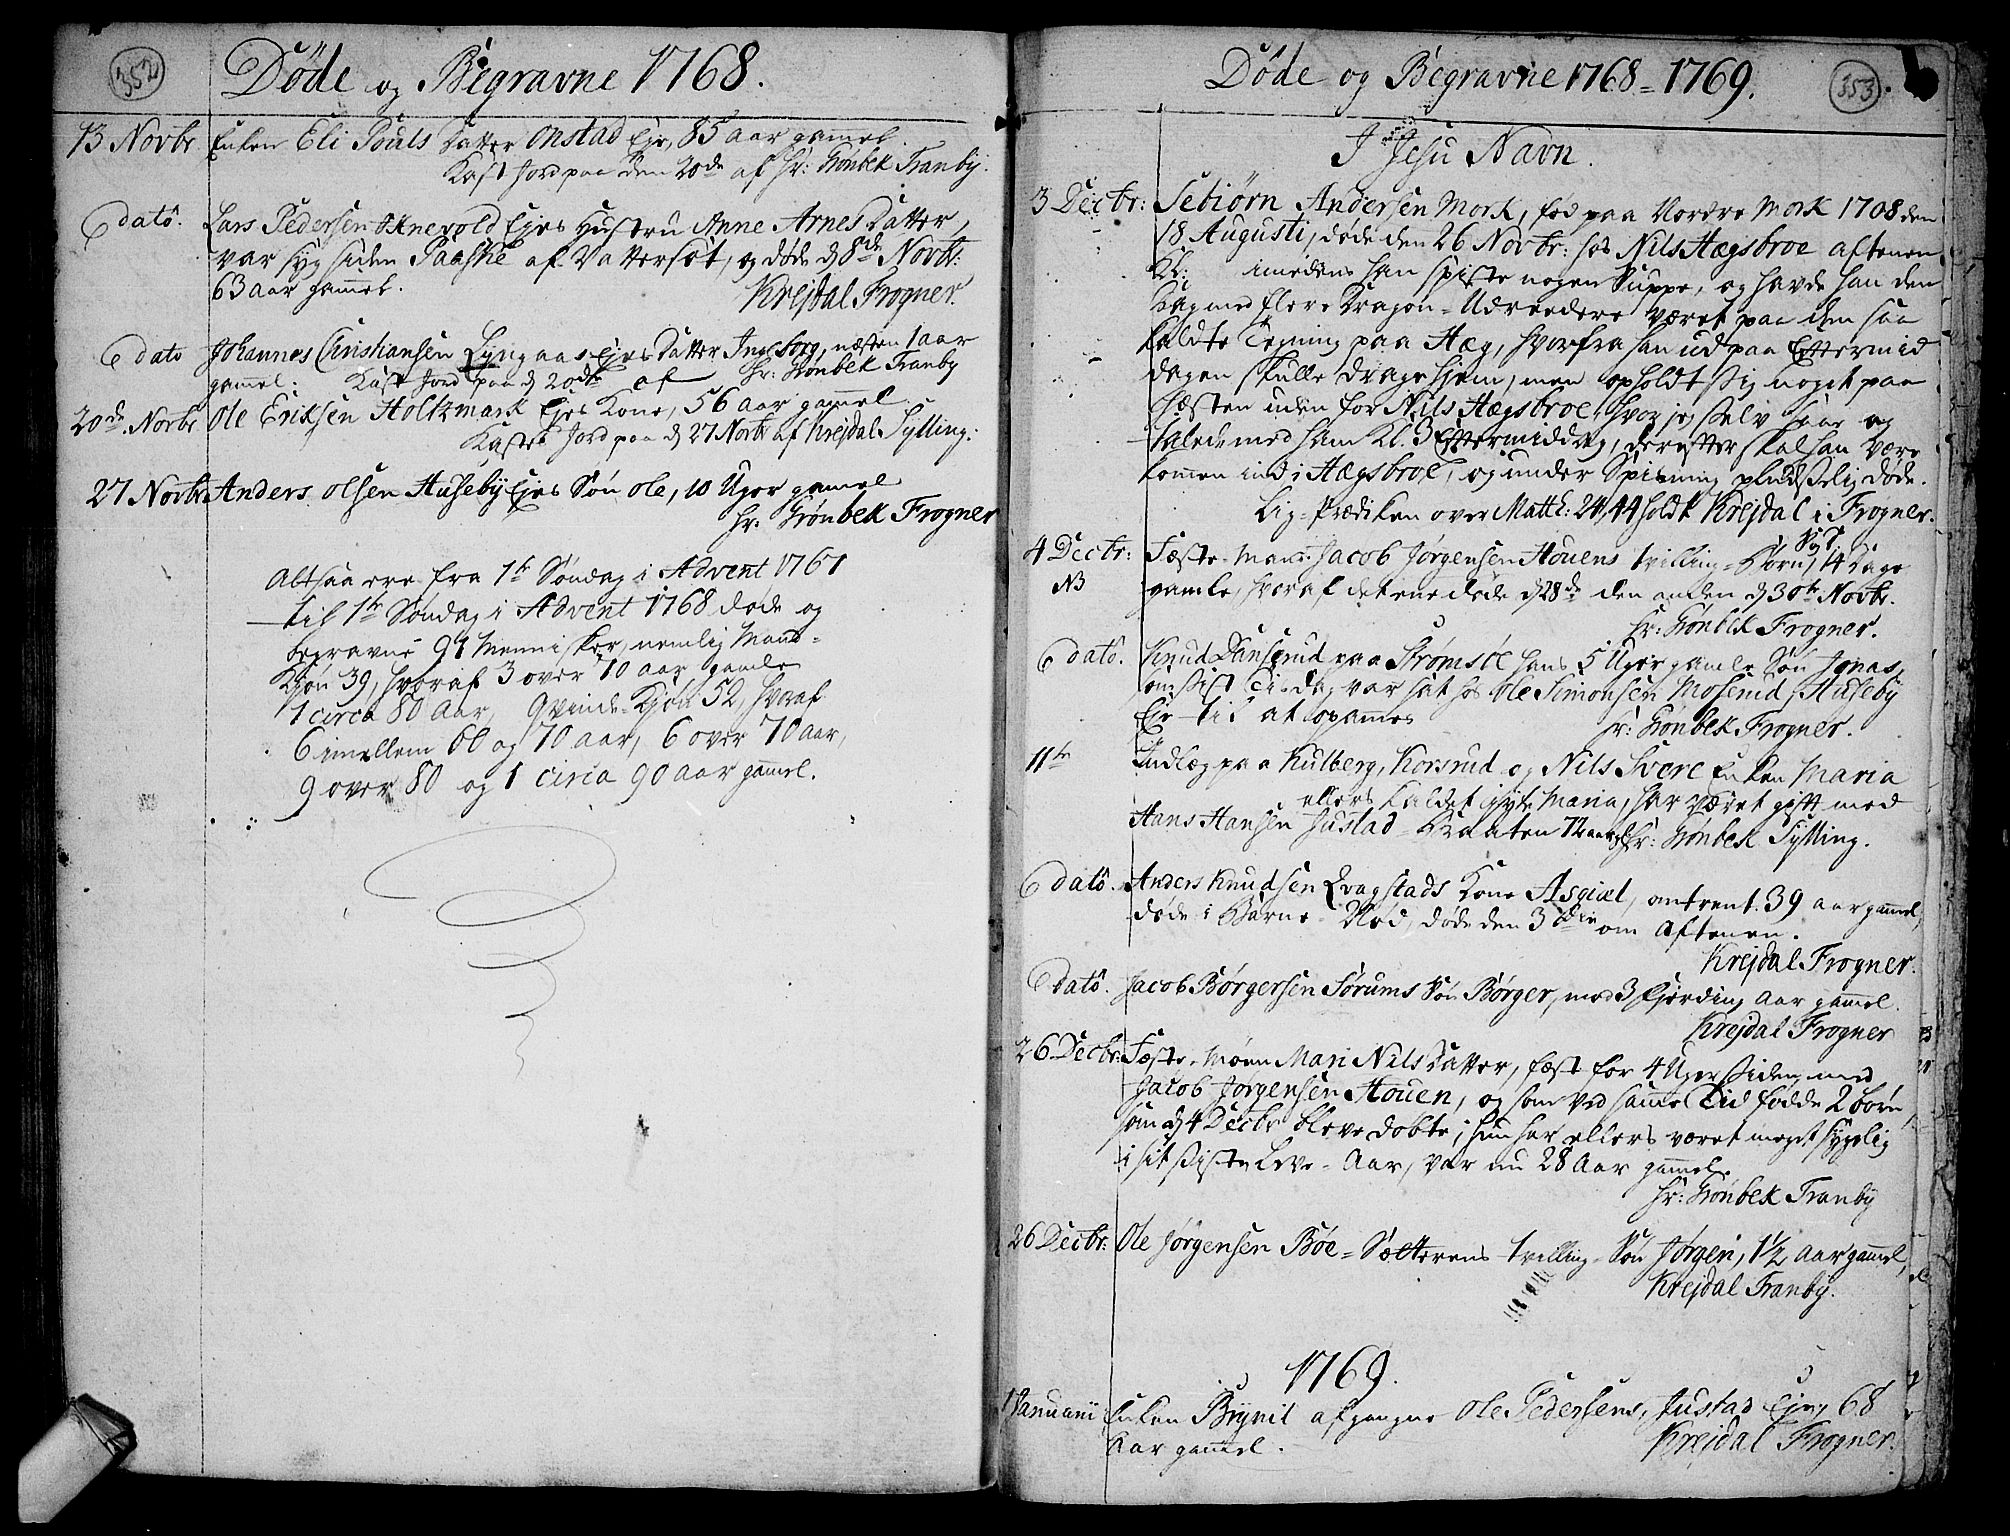 352
Döde og Begravne 1768.
13 Novbr. Enken Eli Pouls Datter Onstad Eje, 85 aar gammel.
Kast Jord paa den 20de af Hr: Grönbek Tranby.
dato. Lars Pedersen Enevold Ejes Hustru Anne Arnes Datter,
var syg siden Paaske af Vattersot, og döde d 8de Novbr:
63 aar gammel. Krejdal Frogner.
dato Johannes Christiansen Lyngaas Ejes Datter Ingeborg, næsten 1 aar
gamel. Kast Jord paa d 20de af Hr: Grönbek Tranby
20de Novbr Ole Eriksen Holtzmark Ejes Kone, 56 aar gammel.
Kastet Jord paa d 27 Novbr af Krejdal Sylling.
27 Novbr Anders Olsen Huseby Ejes Sön Ole, 10 Uger gamel
Hr: Grönbek Frogner
Altsaa ere fra 1te Söndag i Advent 1767
til 1te Söndag i Advent 1768 döde og
begravne 91 Mennisker, nemlig Mand-
Kjön 39, hvoraf 3 over 70 aar gamle
1 circa 80 Aar, Qvinde-Kjön 52, hvoraf
6 imellem 60 og 70 aar, 6 over 70 aar,
9 over 80 og 1 circa 90 Aar gamel.
Döde og Begravne 1768=1769.
353
I Jesu Navn.
3 Decbr: Sebiörn Andersen Mork, föd paa Nordre Mork 1708 den
18 Augusti, döde den 26 Novbr: hos Nils Hægsbroe aftenen
Kl: imedens han spiste nogen Suppe, og havde han den
Dag med flere Dragon-Udreedere været paa den saa
kaldte Tegning paa Hæg, hvorfra han ud paa Eftermid
dagen skulle drage hjem, men opholdt sig noget paa
Hæsten uden for Nils Hægsbroe, hvor jeg selv saae og
talede med ham Kl. 3 Eftermiddag, derefter skal han være
komen ind i Hægsbroe, og under Spisning pludselig döde.
Lig-Prædiken over Matth: 24,44 holdt Krejdal i Frogner.
4 Decbr: Fæste-Mand Jacob Jörgensen Houens tvilling-Börn, 14 Dage
NB gamle, hvoraf det ene döde d 28de den anden d 30te Novbr.
Hr: Grönbek Frogner.
dato. Knud Danserud paa Strömsöe hans 5 Uger gamle Sön Jonas,
om sist Tisdag var sat hos Ole Simonsen Moserud, Huseby
Eje til at opammes Hr: Grönbek Frogner.
11te Indlæg paa Kulberg, Korsrud og Nils Svere Enken Maria
ellers kaldet Maria, har været gift med
Hans Hansen Justad-Braaten 72 aar gl Hr: Grönbek Sylling.
dato. Anders Knudsen Qvagstads Kone Asgiæl, omtrent 39 aar gammel,
döde i Barne-Nöd, döde den 3die om Aftenen.
Krejdal Frogner.
dato. Jacob Börgersen Sörums Sön Börger, med 3 Fjerding Aar gammel.
Krejdal Frogner
26 Decbr: Fæste-Möen Mari Nils Datter, fæst for 4 Uger siden med
Jacob Jörgensen Houen, og som ved samme Tid födde 2 börn
som d 4 Decbr bleve döbte; hun har ellers været meget sygelig
i sit sidste Leve-Aar, var nu 28 Aar gamel.
Hr: Grönbek Tranby
26 Decbr: Ole Jörgensen Böe-Sætterens tvilling-Sön Jörgen, 1½ Aar gammel,
Krejdal Tranby.
1769.
1 Januarii Enken Brynil afgangne Ole Pedersens, Justad Eje, 68
Aar gammel. Krejdal Frogner.